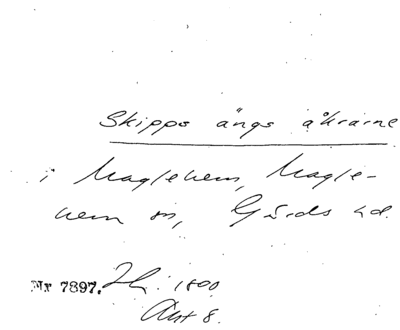 Skipps ängs åkrarne
i Maglehem, Magle-
hem sn, Gärds hd.
Nr 7897. 1800
Akt 8.